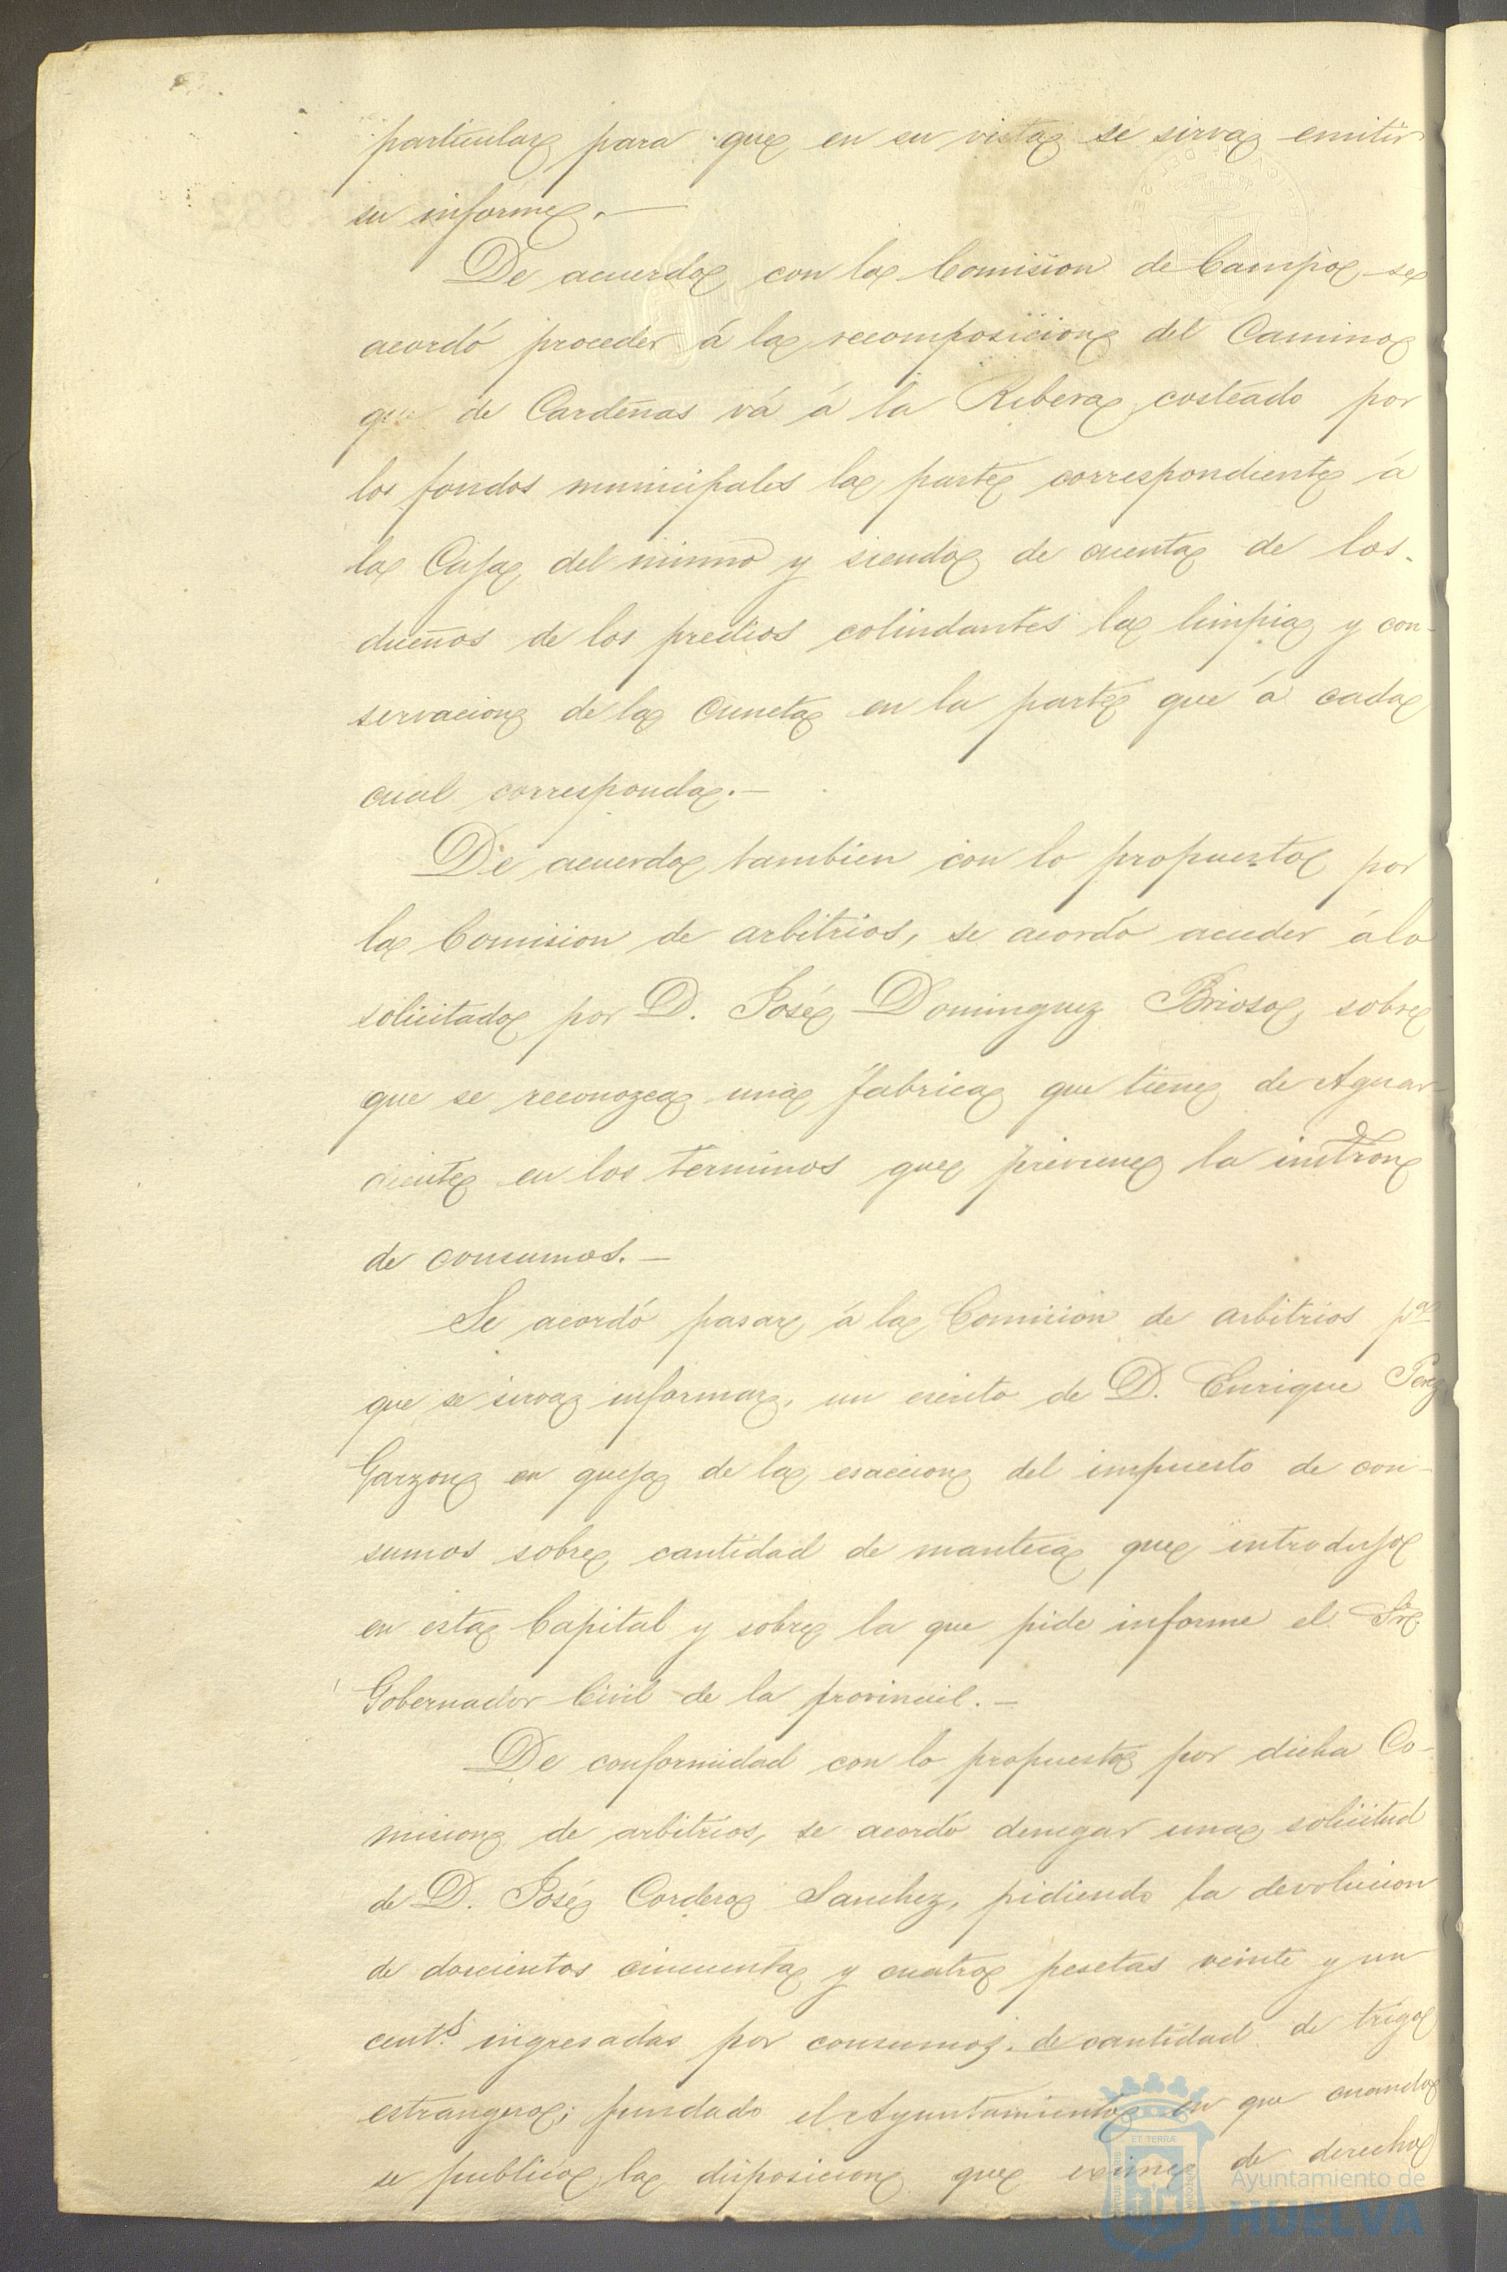 particular para que en su vista se sirva emitir
su informe.—
De acuerdo con la Comision de Campo se
acordó proceder á la recomposicion del Camino
que de Cardeñas vá á la Ribera costeado por
los fondos municipales la parte correspondiente á
la Caja del mismo y siendo de cuenta de los
dueños de los predios colindantes la limpia y con-
servacion de la Cuneta en la parte que á cada
cual corresponda.—
De acuerdo tambien con lo propuesto por
la Comision de arbitrios, se acordó acceder á lo
solicitado por D. José Dominguez Brioso, sobre
que se reconozca una fabrica que tiene de Aguar-
diente en los terminos que previene la instron
de consumos.—
Se acordó pasar á la Comision de arbitrios pª
que se sirva informar, un escrito de D. Enrique Perez
Garzon en queja de la esaccion del impuesto de con-
sumos sobre cantidad de manteca que introdujo
en esta Capital y sobre la que pide informe el Sr.
Gobernador Civil de la provincial.—
De conformidad con lo propuesto por dicha Co-
mision de arbitrios, se acordó denegar una solicitud
de D. José Cordero Sanchez, pidiendo la devolucion
de doscientos cincuenta y cuatro pesetas veinte y un
cents. ingresadas por consumos de cantidad de trigo
estrangero; fundado el Ayuntamiento en que cuando
se publicó la disposicion que exime de derecho
ET TERRÆ
Ayuntamiento de
HUELVA